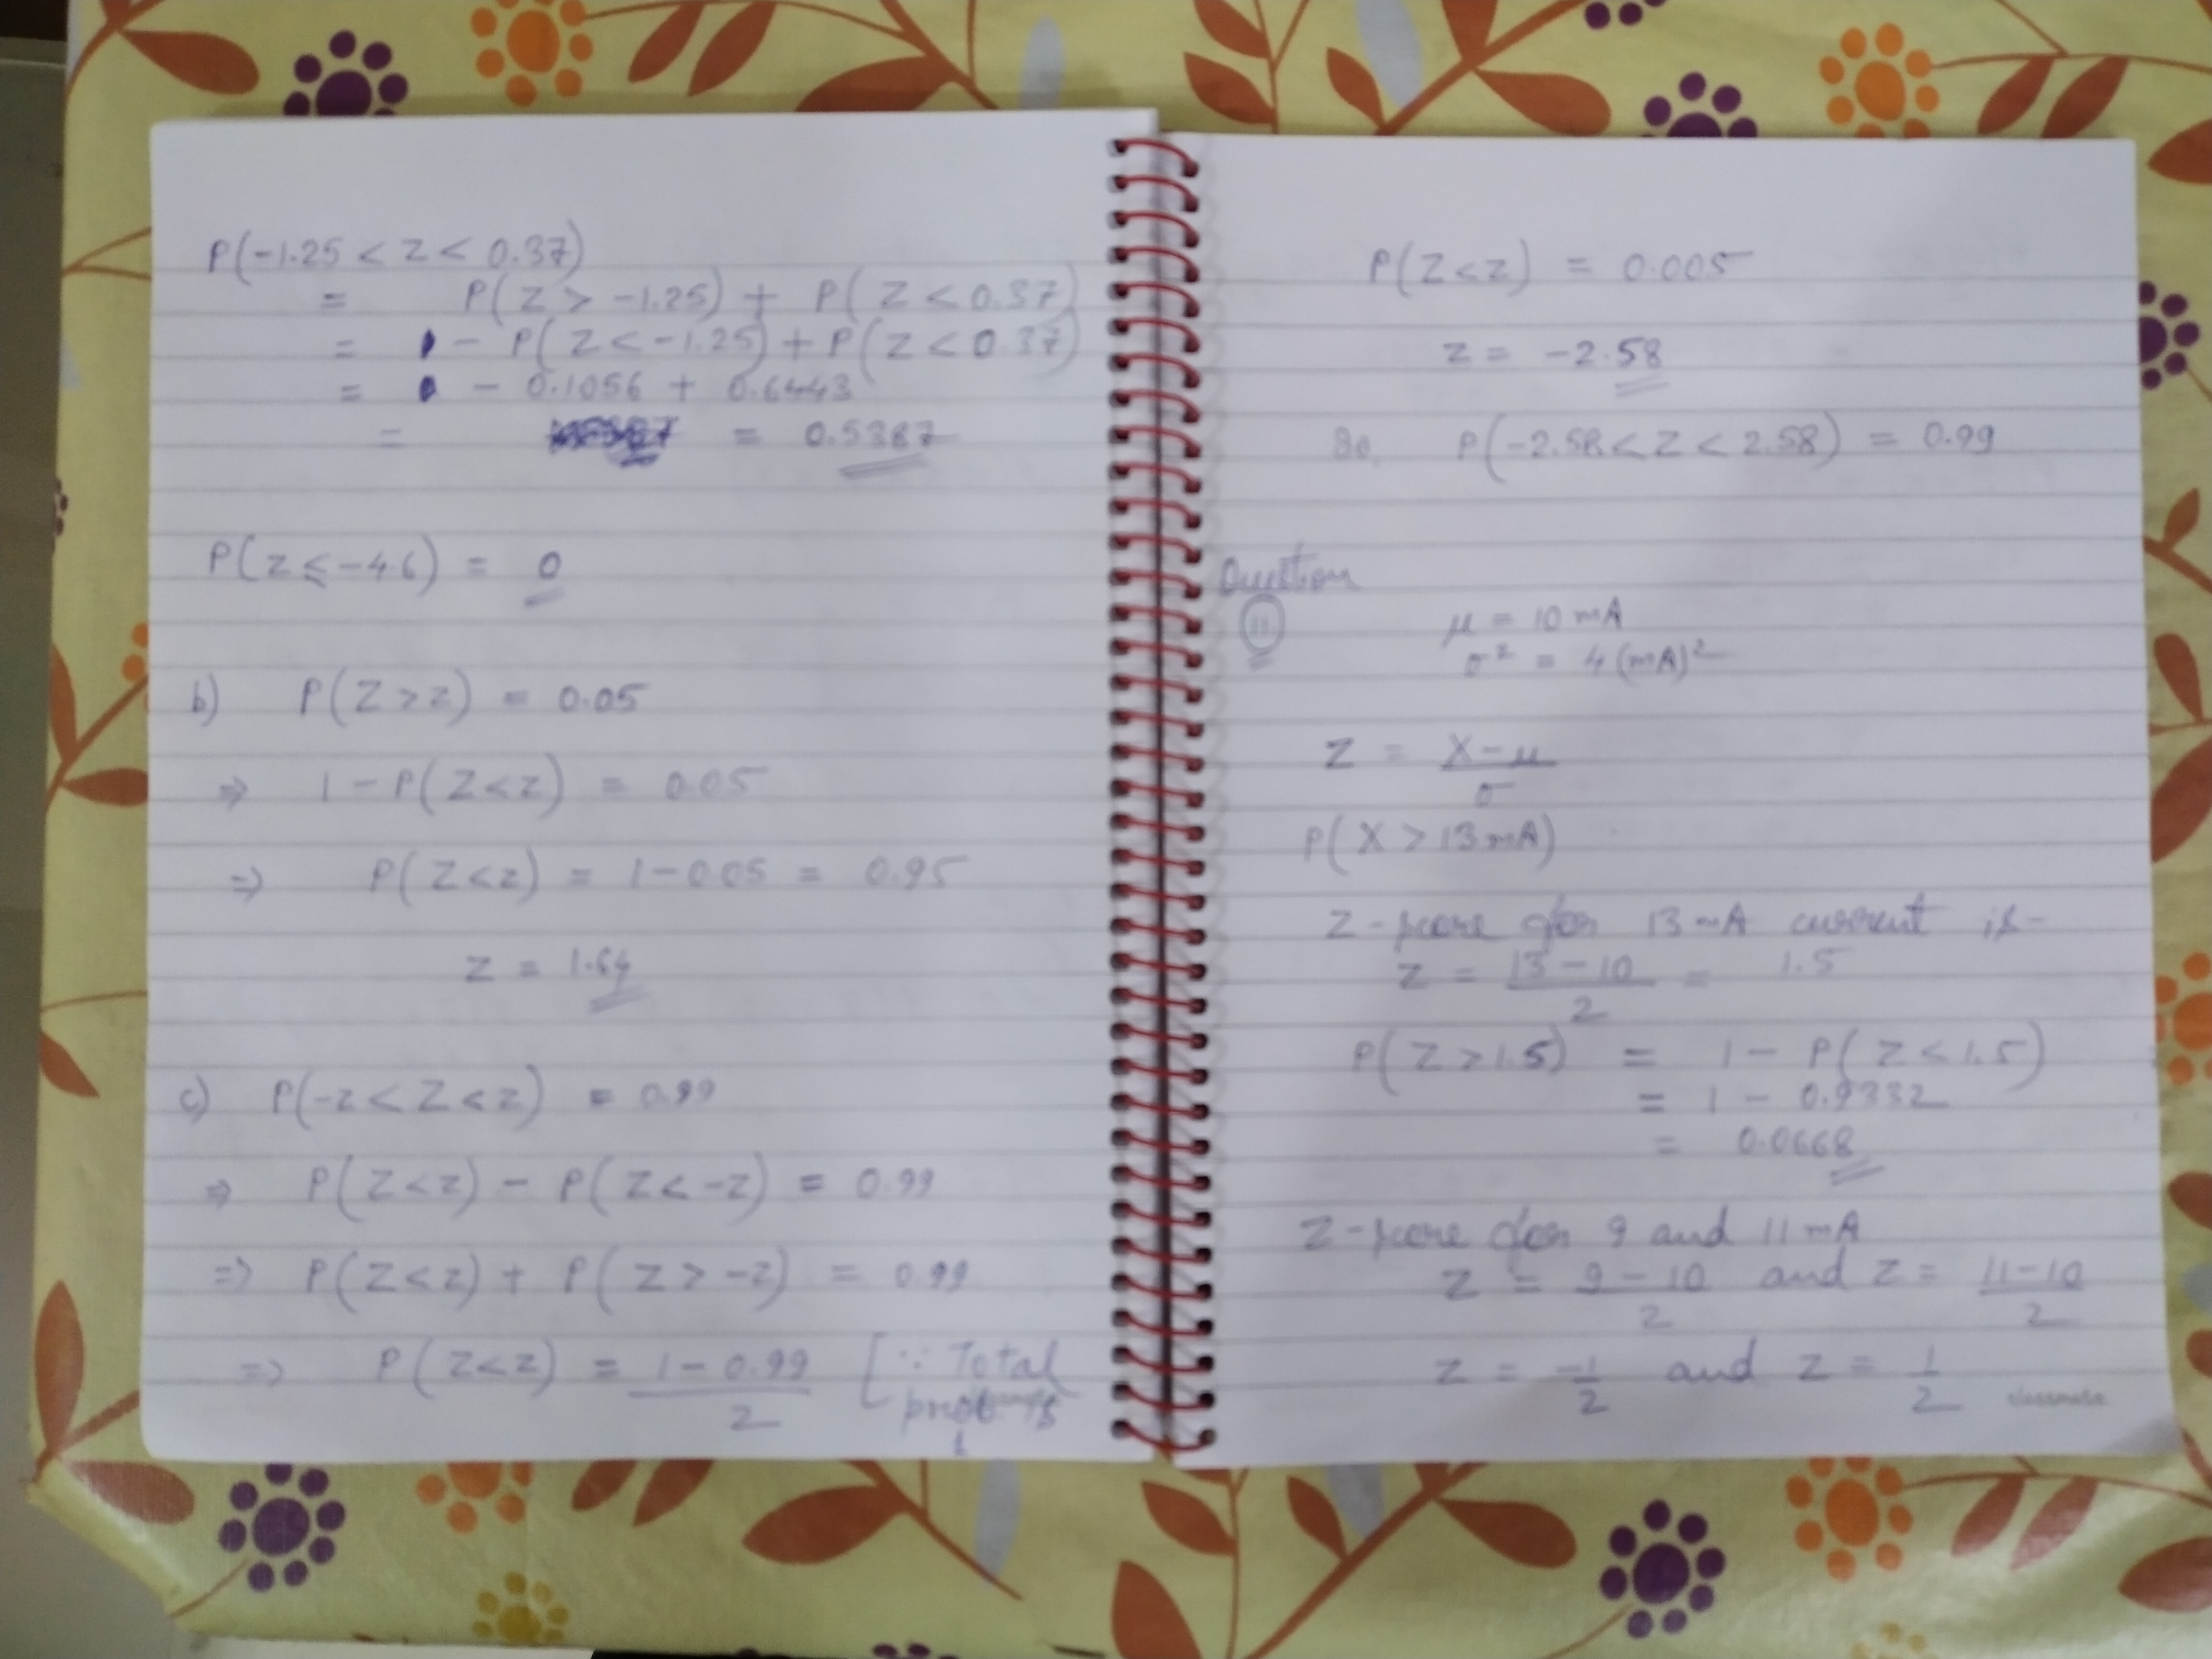 P(-1.25 < Z < 0.37)
= P(Z > -1.25) + P(Z < 0.37)
= - P(Z < -1.25) + P(Z < 0.37)
= - 0.1056 + 0.6443
= = 0.5387
P(Z ≤ -4.6) = 0
b) P(Z > z) = 0.05
⇒ 1 - P(Z < z) = 0.05
⇒ P(Z < z) = 1 - 0.05 = 0.95
z = 1.64
c) P(-z < Z < z) = 0.99
⇒ P(Z < z) - P(Z < -z) = 0.99
⇒ P(Z < z) + P(Z > -z) = 0.99
⇒ P(Z < z) = 1 - 0.99 [∵ Total
2
P(Z < z) = 0.005
z = -2.58
So, P(-2.58 < Z < 2.58) = 0.99
Question
11
μ = 10 mA
σ² = 4 (mA)²
Z = X - μ
σ
P(X > 13 mA)
Z-score for 13 mA current is -
Z = 13 - 10 = 1.5
2
P(Z > 1.5) = 1 - P(Z < 1.5)
= 1 - 0.9332
= 0.0668
Z-score for 9 and 11 mA
Z = 9 - 10 and Z = 11 - 10
2 2
Z = -1 and Z = 1
2 2